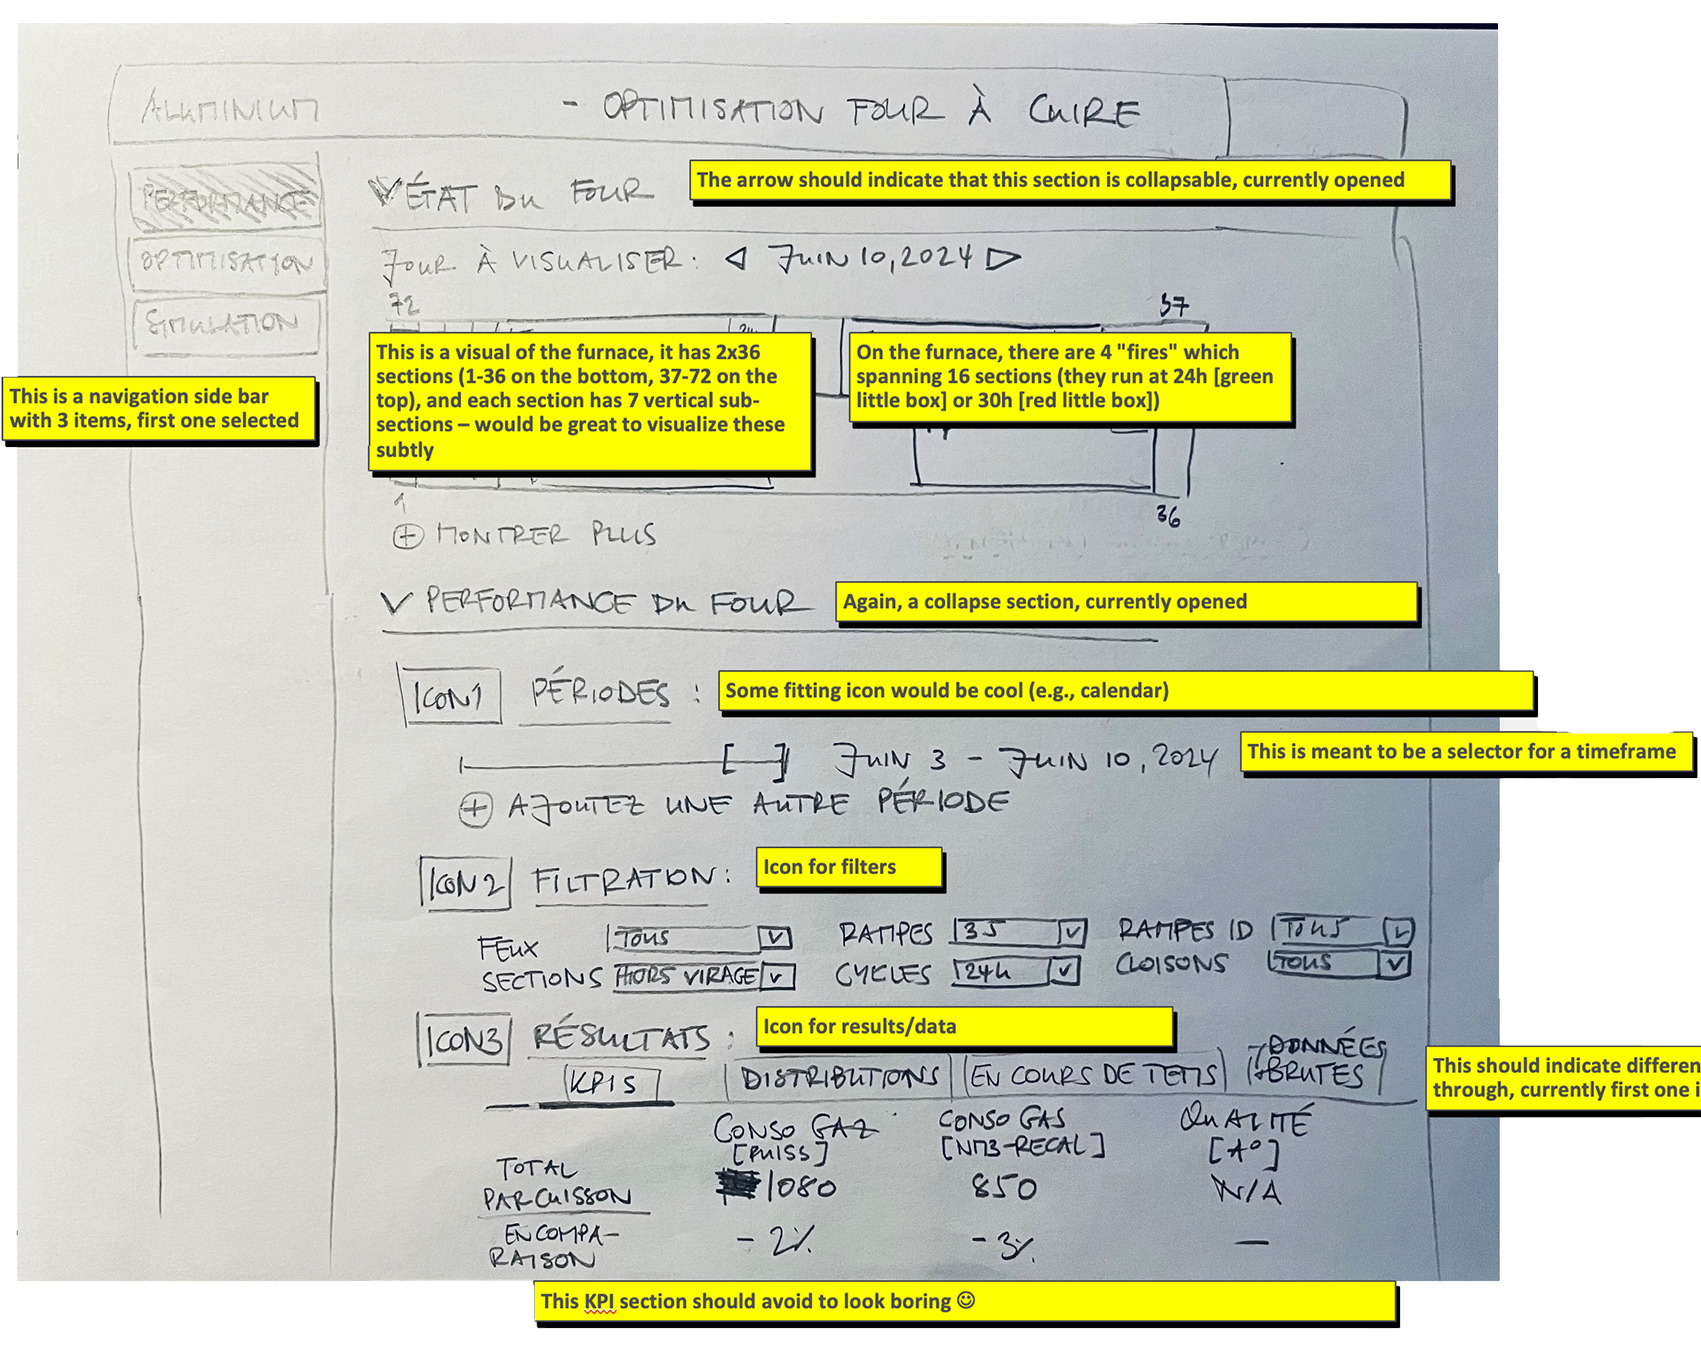 ALUMINIUM
- OPTIMISATION FOUR À CUIRE
PERFORMANCE
OPTIMISATION
SIMULATION
This is a navigation side bar
with 3 items, first one selected
ÉTAT DU FOUR
The arrow should indicate that this section is collapsable, currently opened
JOUR À VISUALISER: ◁ JUIN 10, 2024 ▷
72
37
This is a visual of the furnace, it has 2x36
sections (1-36 on the bottom, 37-72 on the
top), and each section has 7 vertical sub-
sections – would be great to visualize these
subtly
On the furnace, there are 4 "fires" which
spanning 16 sections (they run at 24h [green
little box] or 30h [red little box])
1
36
⊕ MONTRER PLUS
PERFORMANCE DU FOUR
Again, a collapse section, currently opened
ICON1 PÉRIODES :
Some fitting icon would be cool (e.g., calendar)
JUIN 3 - JUIN 10, 2024
This is meant to be a selector for a timeframe
⊕ AJOUTEZ UNE AUTRE PÉRIODE
ICON2 FILTRATION:
Icon for filters
FEUX TOUS RAMPES 35 RAMPES ID TOUS
SECTIONS HORS VIRAGE CYCLES 24h CLOISONS TOUS
ICON3 RÉSULTATS :
Icon for results/data
KPIS DISTRIBUTIONS EN COURS DE TEMS DONNÉES BRUTES
This should indicate differen
through, currently first one i
CONSO GAZ CONSO GAS QUALITÉ
[PUISS] [NM3-RECAL] [A°]
TOTAL
PAR CUISSON 1080 850 N/A
EN COMPA-
RAISON - 2% - 3% —
This KPI section should avoid to look boring ☺